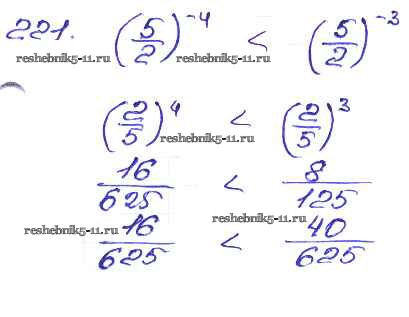 221. (5/2)^-4 < (5/2)^-3
reshebnik5-11.ru reshebnik5-11.ru
(2/5)^4 < (2/5)^3
reshebnik5-11.ru
16/625 < 8/125
reshebnik5-11.ru
16/625 < 40/625
reshebnik5-11.ru